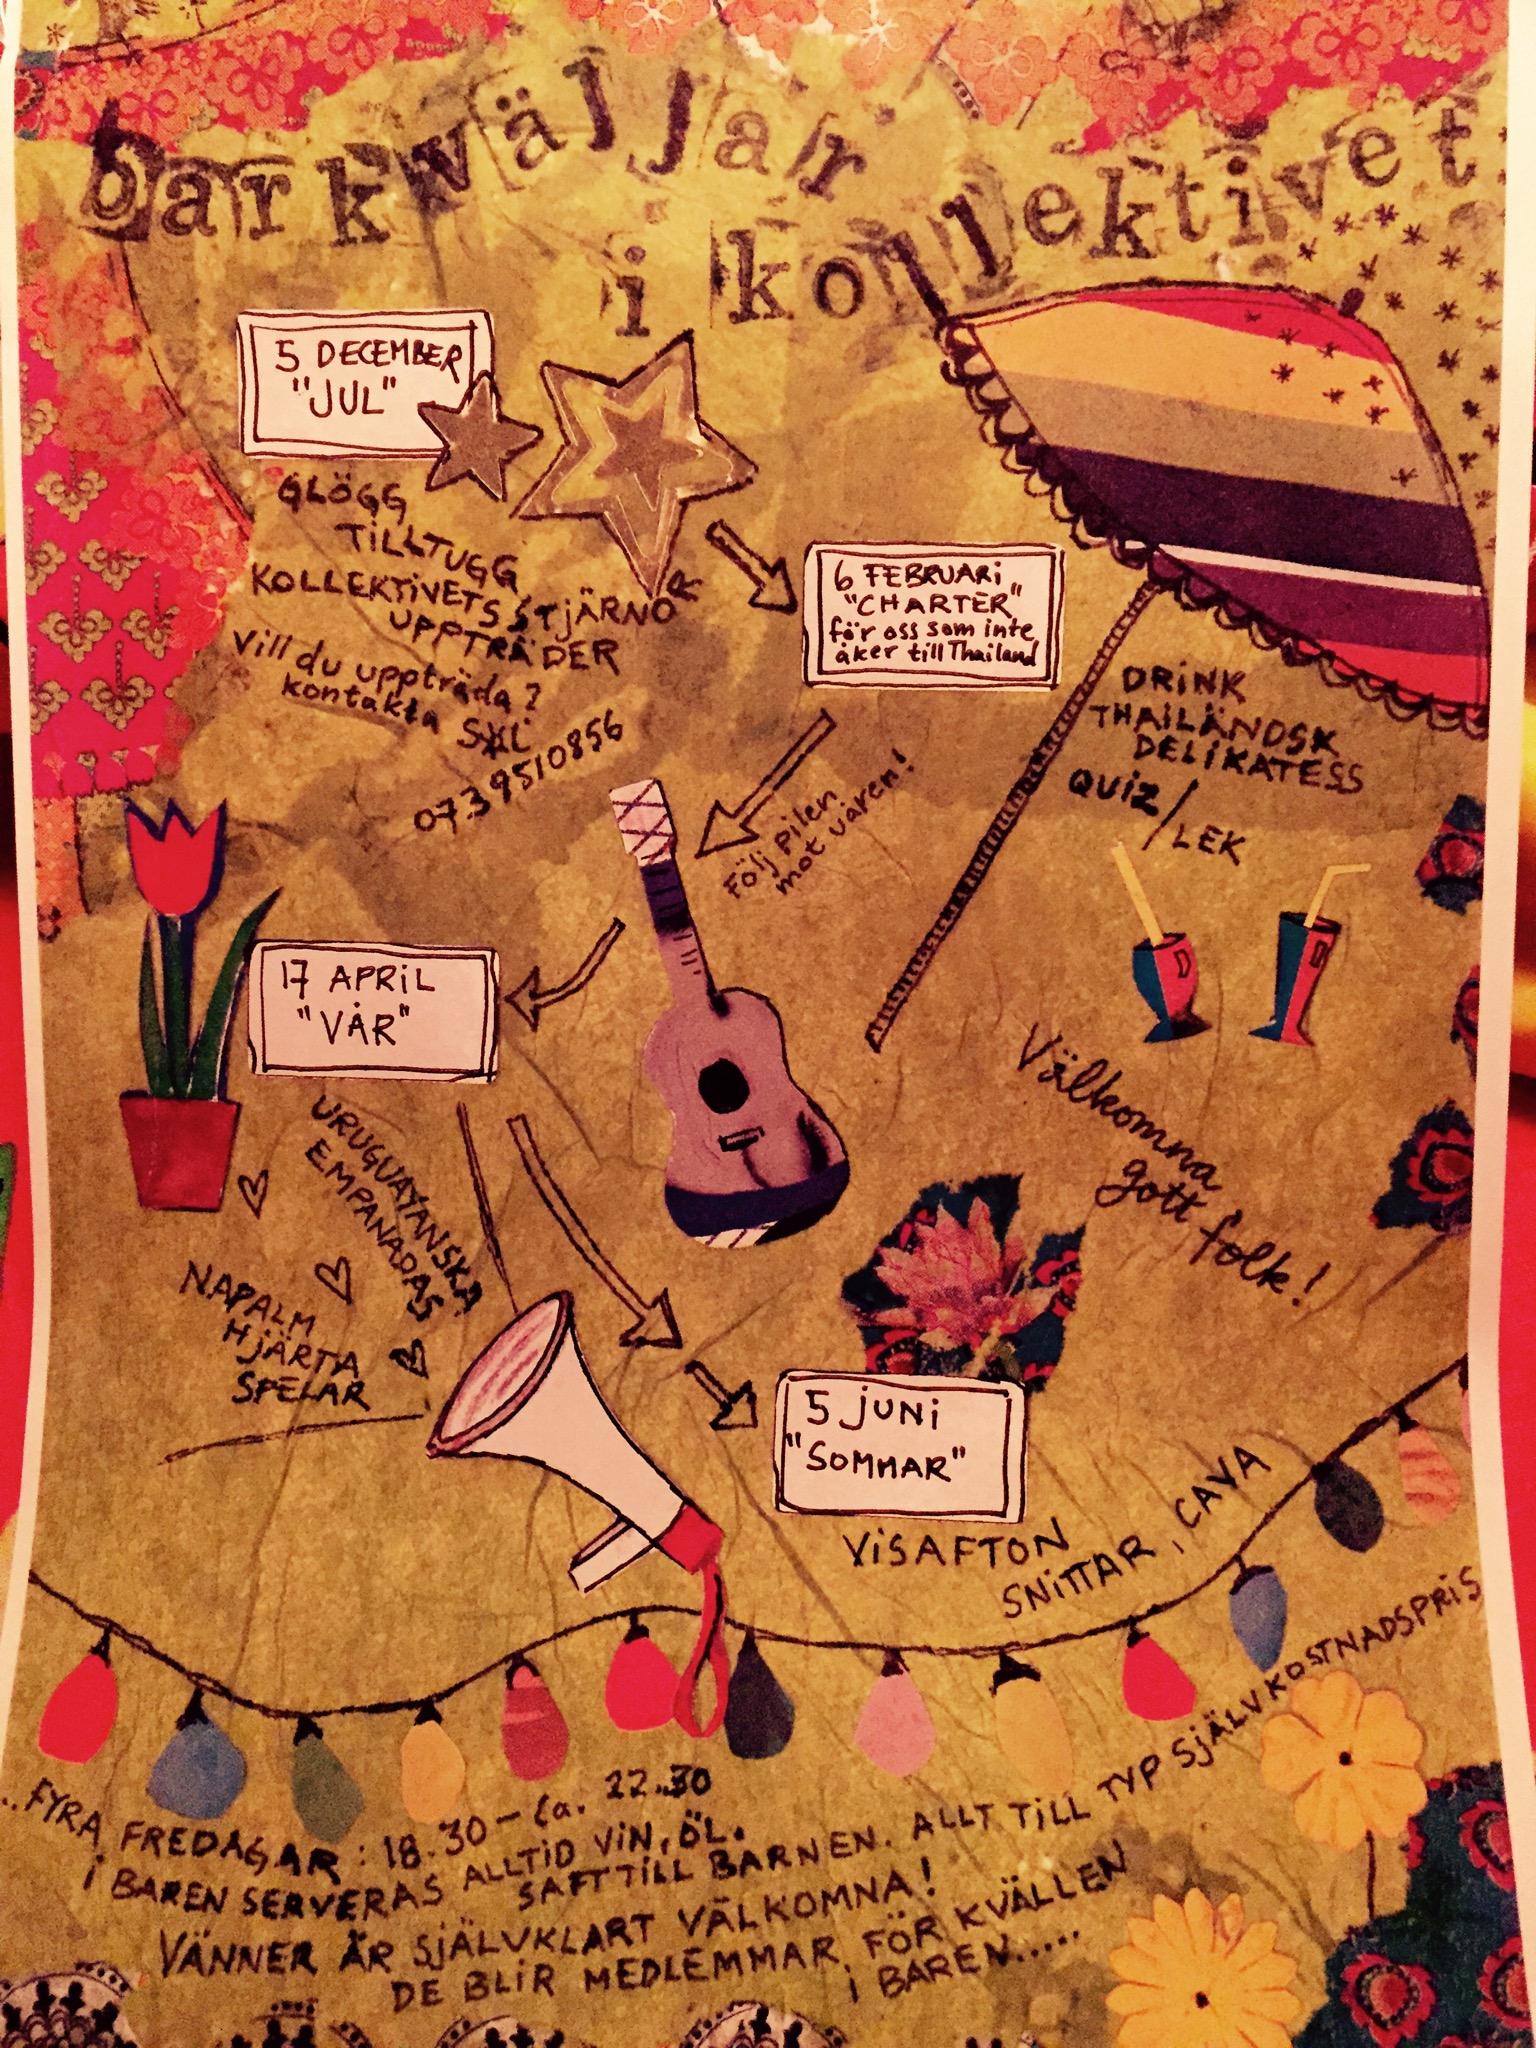 barkvällar
i kollektivet
5 DECEMBER
"JUL"
GLÖGG
TILLTUGG
KOLLEKTIVETS STJÄRNOR
UPPTRÄDER
Vill du uppträda?
kontakta
0739510856
6 FEBRUARI
"CHARTER"
för oss som inte
åker till Thailand
DRINK
THAILÄNDSK
DELIKATESS
QUIZ/
LEK
Följ pilen
mot våren!
17 APRIL
"VÅR"
URUGUAYANSKA
EMPANADAS
NAPALM
HJÄRTA
SPELAR
Välkomna
gott folk!
5 JUNI
"SOMMAR"
VISAFTON
SNITTAR, CAVA
..FYRA FREDAGAR: 18.30 - Ca. 22.30
I BAREN SERVERAS ALLTID VIN, ÖL.
SAFT TILL BARNEN. ALLT TILL TYP SJÄLVKOSTNADSPRIS
VÄNNER ÄR SJÄLVKLART VÄLKOMNA!
DE BLIR MEDLEMMAR FÖR KVÄLLEN
I BAREN.....